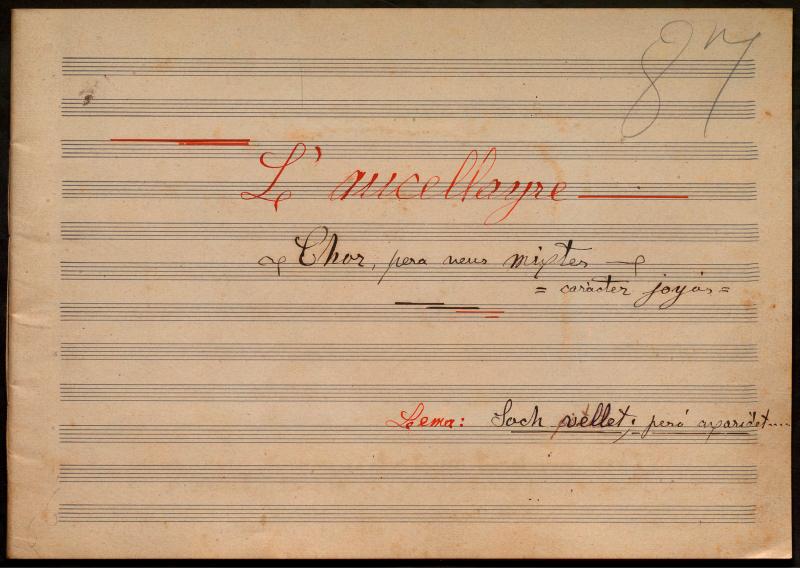 87
L' aucellayre
Chor, pera veus mixtes
= caràcter joyós =
Lema: Soch vellet; peró axaridet....